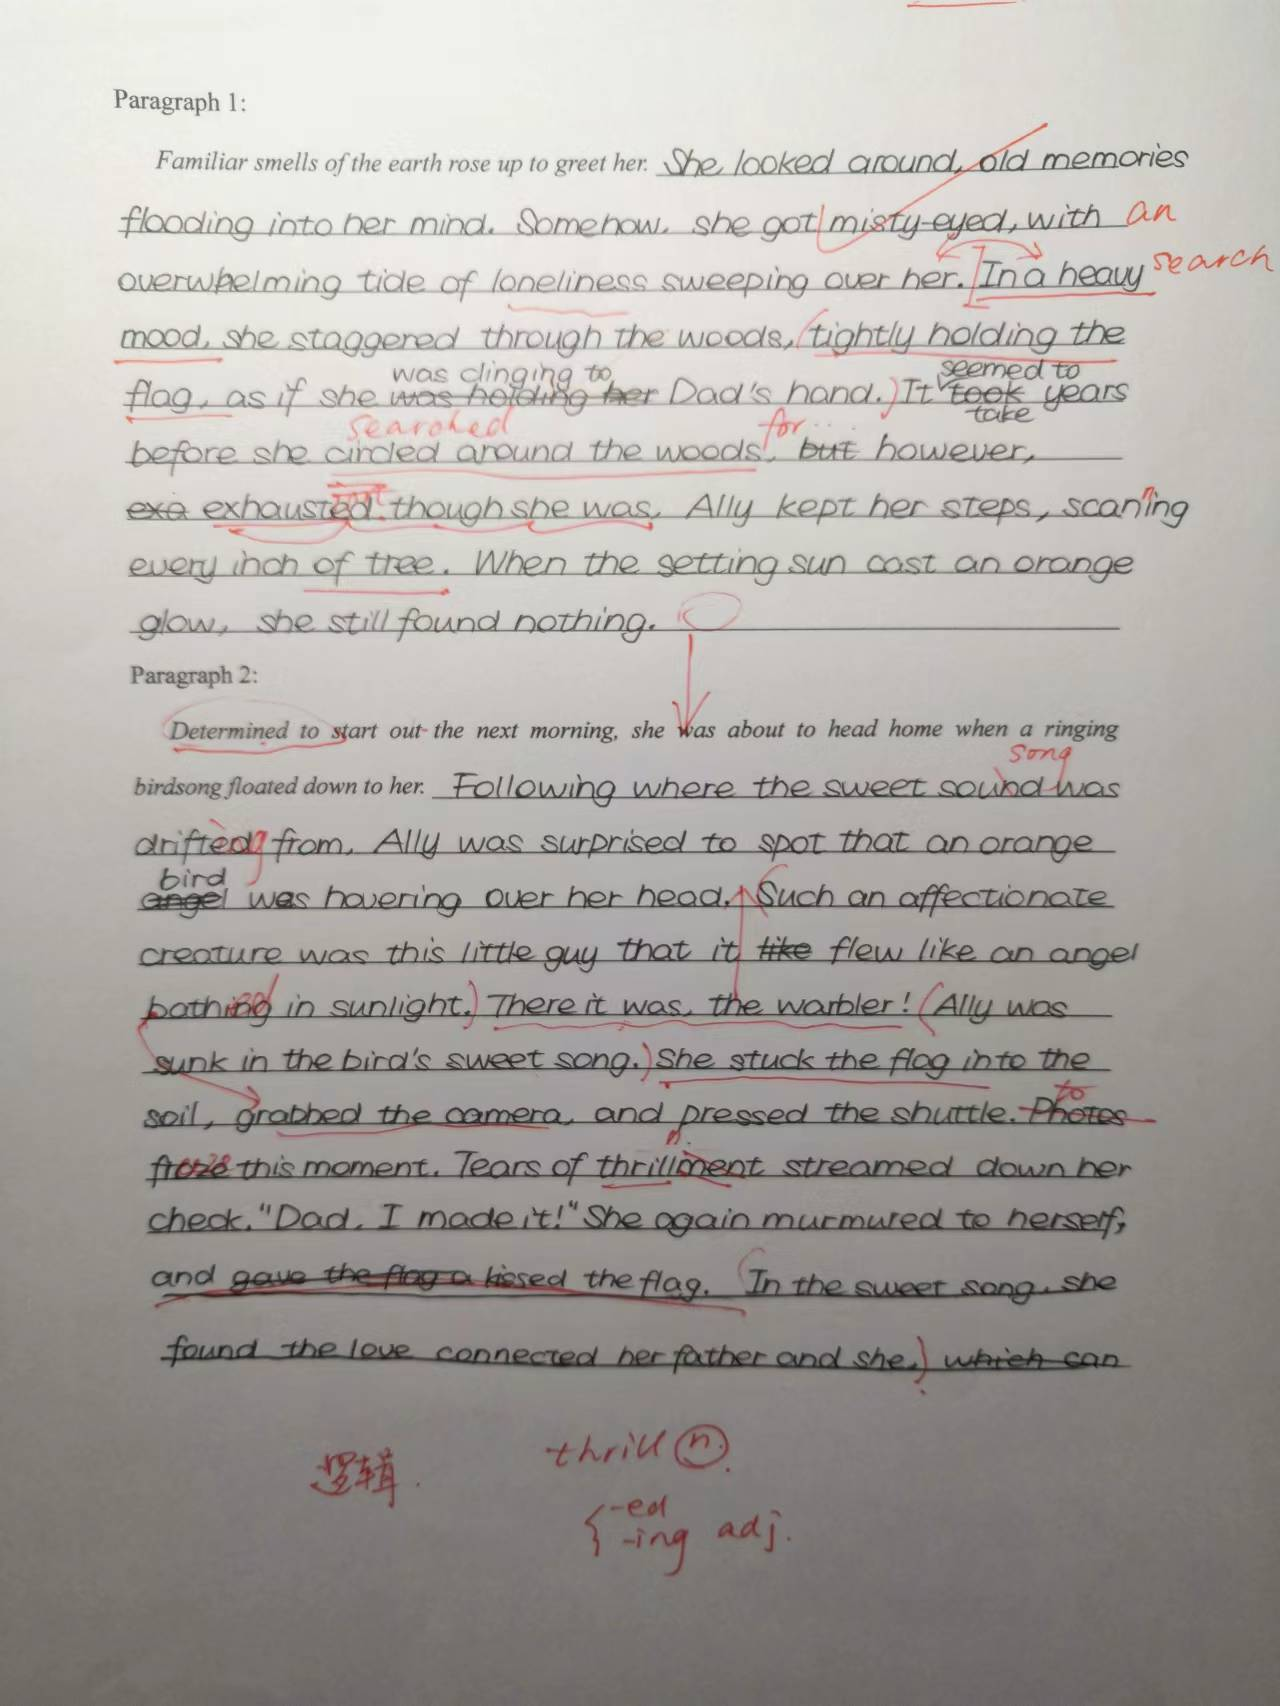 Paragraph 1:
Familiar smells of the earth rose up to greet her. She looked around, old memories
flooding into her mind. Somehow, she got misty-eyed, with an
overwhelming tide of loneliness sweeping over her. In a heavy search
mood, she staggered through the woods, tightly holding the
was clinging to seemed to
flag, as if she was holding her Dad's hand. It took years
take
searched for...
before she circled around the woods, but however,
exa exhausted though she was, Ally kept her steps, scaning
n
every inch of tree. When the setting sun cast an orange
glow, she still found nothing.
Paragraph 2:
Determined to start out the next morning, she was about to head home when a ringing
song
birdsong floated down to her. Following where the sweet sound was
drifted from, Ally was surprised to spot that an orange
bird
angel was hovering over her head. Such an affectionate
creature was this little guy that it like flew like an angel
bathing in sunlight. There it was, the warbler! Ally was
sunk in the bird's sweet song. She stuck the flag into the
to
soil, grabbed the camera, and pressed the shuttle. Photos
n.
froze this moment. Tears of thrillment streamed down her
check. "Dad, I made it!" She again murmured to herself,
and gave the flag a kissed the flag. In the sweet song, she
found the love connected her father and she. which can
逻辑. thrill n.
-ed
-ing adj.